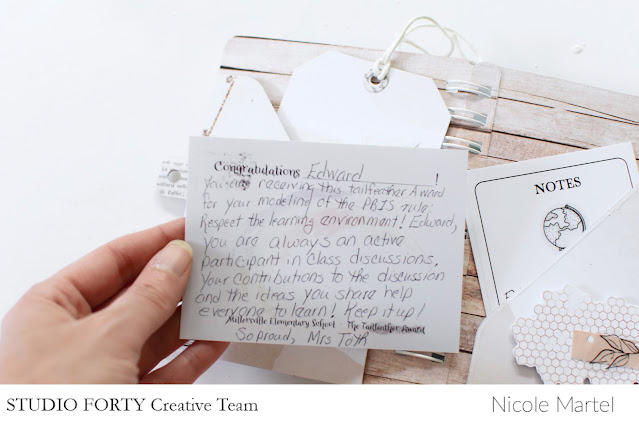 Congratulations Edward !
You are receiving this tailfeather Award
for your modeling of the PBIS rule:
Respect the learning environment! Edward,
you are always an active
participant in class discussions.
Your contributions to the discussion
and the ideas you share help
everyone to learn! Keep it up!
Millersville Elementary School The Tailfeather Award
So proud, Mrs Toth
NOTES
STUDIO FORTY Creative Team
Nicole Martel